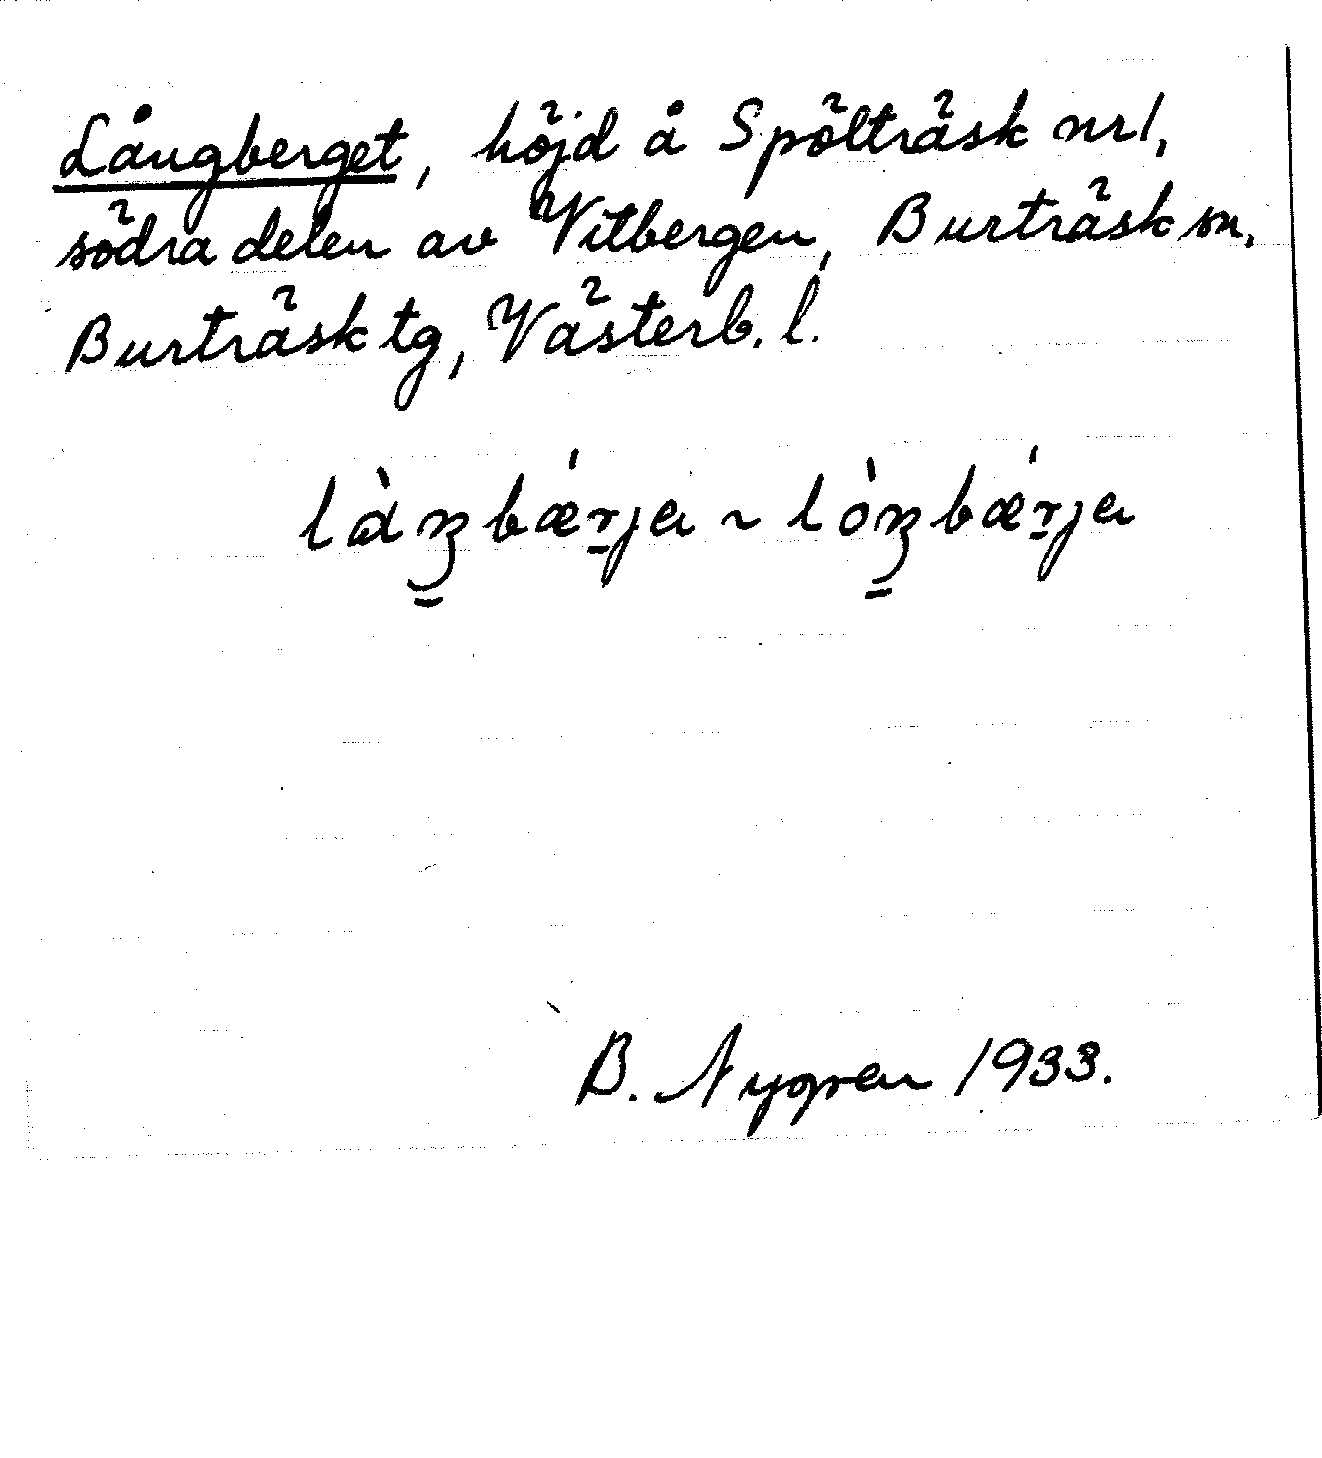 Långberget, höjd å Spölträsk nr 1,
södra delen av Vitbergen, Burträsk sn,
Burträsk tg, Västerb. l.
làŋ̳bær̠ja ~ lòŋ̳bær̠ja
B. Nygren 1933.